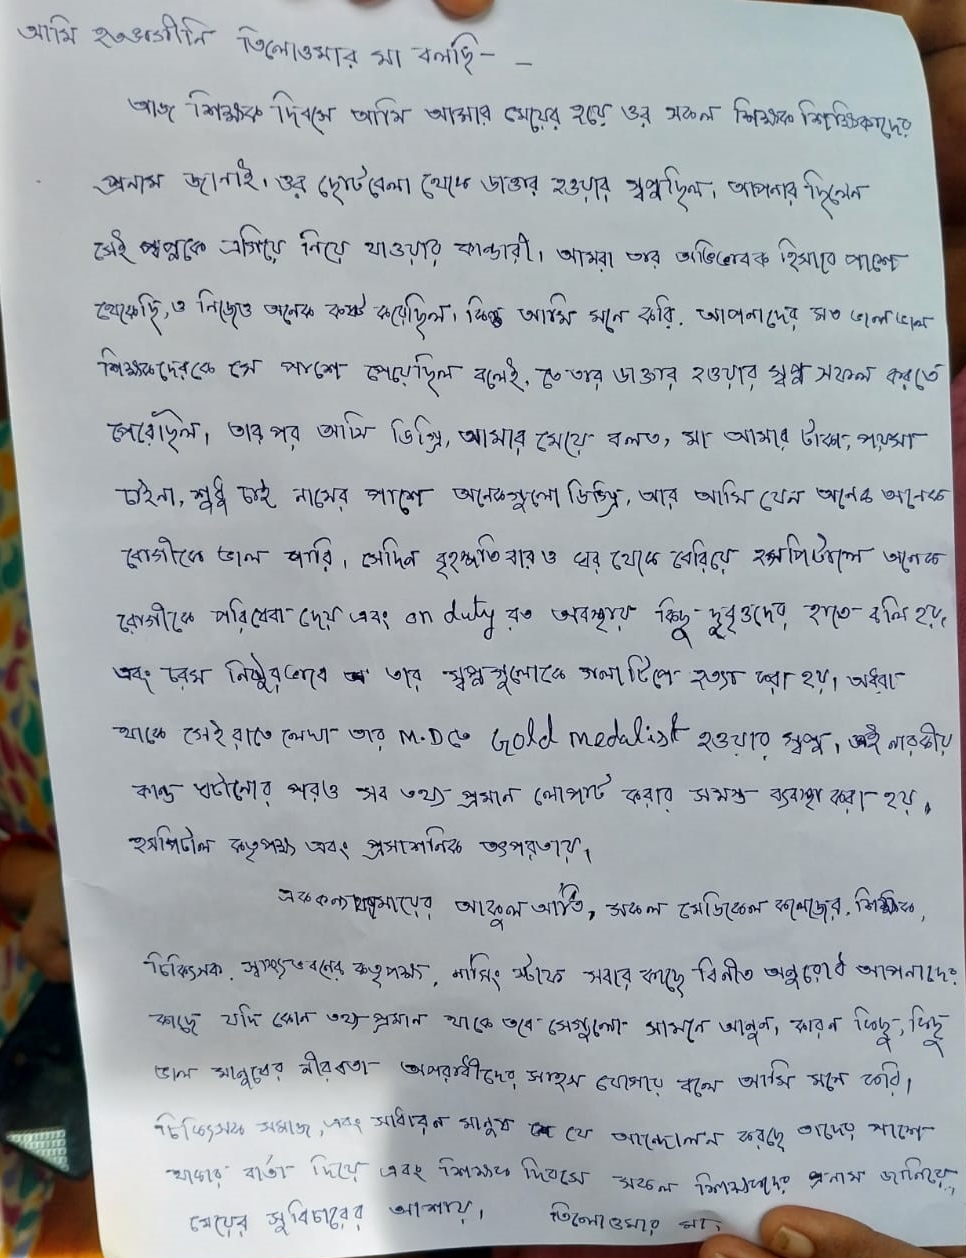 আমি হতভাগীনি তিলোত্তমার মা বলছি - -
আজ শিক্ষক দিবসে আমি আমার মেয়ের হয়ে ওর সকল শিক্ষক শিক্ষিকাদের
প্রনাম জানাই। ওর ছোটবেলা থেকে ডাক্তার হওয়ার স্বপ্ন ছিল। আপনার ছিলেন
সেই স্বপ্নকে এগিয়ে নিয়ে যাওয়ার কান্ডারী। আমরা তার অভিভাবক হিসাবে পাশে
থেকেছি, ও নিজেও অনেক কষ্ট করেছিল। কিন্তু আমি মনে করি, আপনাদের মত ভাল ভাল
শিক্ষকদেরকে সে পাশে পেয়েছিল বলেই, তার ডাক্তার হওয়ার স্বপ্ন সফল করতে
পেরেছিল। তারপর আমি ডিগ্রি, আমার মেয়ে বলত, মা আমার টাকা, পয়সা
চাইনা, শুধু চাই নামের পাশে অনেকগুলো ডিগ্রি, আর আমি যেন অনেক অনেক
রোগীকে ভাল পারি। সেদিন বৃহস্পতিবারও ঘর থেকে বেরিয়ে হসপিটালে অনেক
রোগীকে পরিষেবা দেয় এবং on duty রত অবস্থায় কিছু দুবৃত্তদের হাতে বলি হয়,
এবং চরম নিষ্ঠুরভাবে তার স্বপ্নগুলোকে গলাটিপে হত্যা করা হয়। অধরা
থাকে সেই রাতে লেখা তার M.D তে Gold medalist হওয়ার স্বপ্ন। এই নারকীয়
কান্ড ঘটানোর পরও সব তথ্য প্রমান লোপাট করার সমস্ত ব্যবস্থা করা হয়,
হসপিটাল কতৃপক্ষ এবং প্রসাশনিক তৎপরতায়।
মায়ের আকুল আর্তি, সকল মেডিকেল কলেজের, শিক্ষক,
চিকিৎসক, স্বাস্থ্যভবনের কতৃপক্ষ, নার্সিং স্টাফ সবার কাছে বিনীত অনুরোধ আপনাদের
কাছে যদি কোন তথ্য প্রমান থাকে তবে সেগুলো সামনে আনুন, কারন কিছু, কিছু
ভাল মানুষের নীরবতা অপরাধীদের সাহস যোগায় বলে আমি মনে করি।
চিকিৎসক সমাজ, এবং সাধারন মানুষ যে আন্দোলন করছে তাদের পাশে
থাকার বার্তা দিয়ে এবং শিক্ষক দিবসে সকল শিক্ষকদের প্রনাম জানিয়ে,
মেয়ের সুবিচারের আশায়। তিলোত্তমার মা।